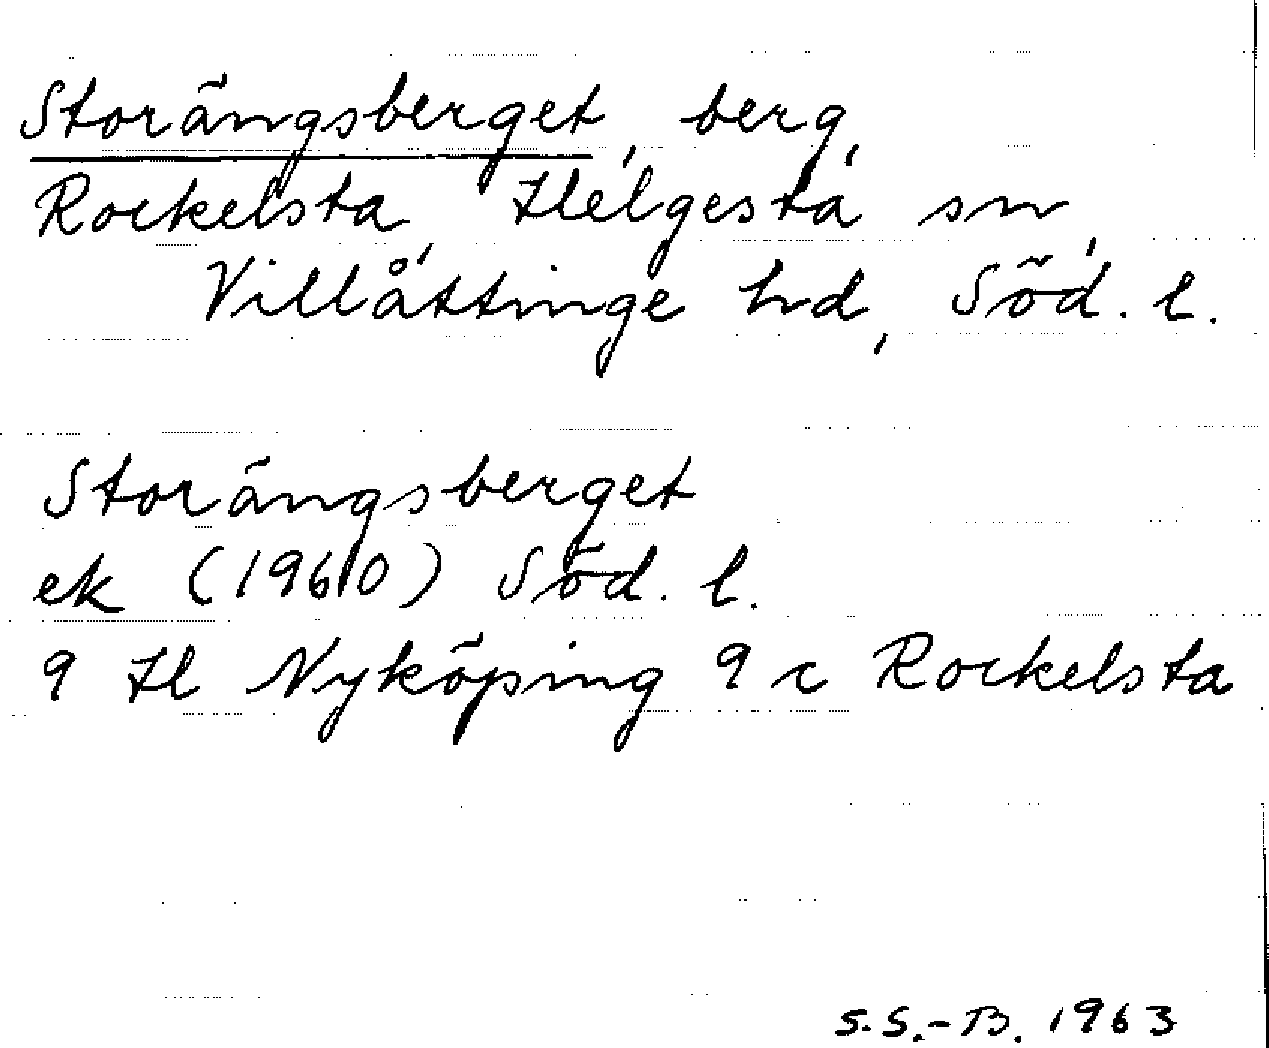 Storängsberget, berg,
Rockelsta, Helgesta sn,
Villåttinge hd, Söd. l.
Storängsberget
ek (1960) Söd. l.
9 H Nyköping 9 c Rockelsta
S.S.-B. 1963